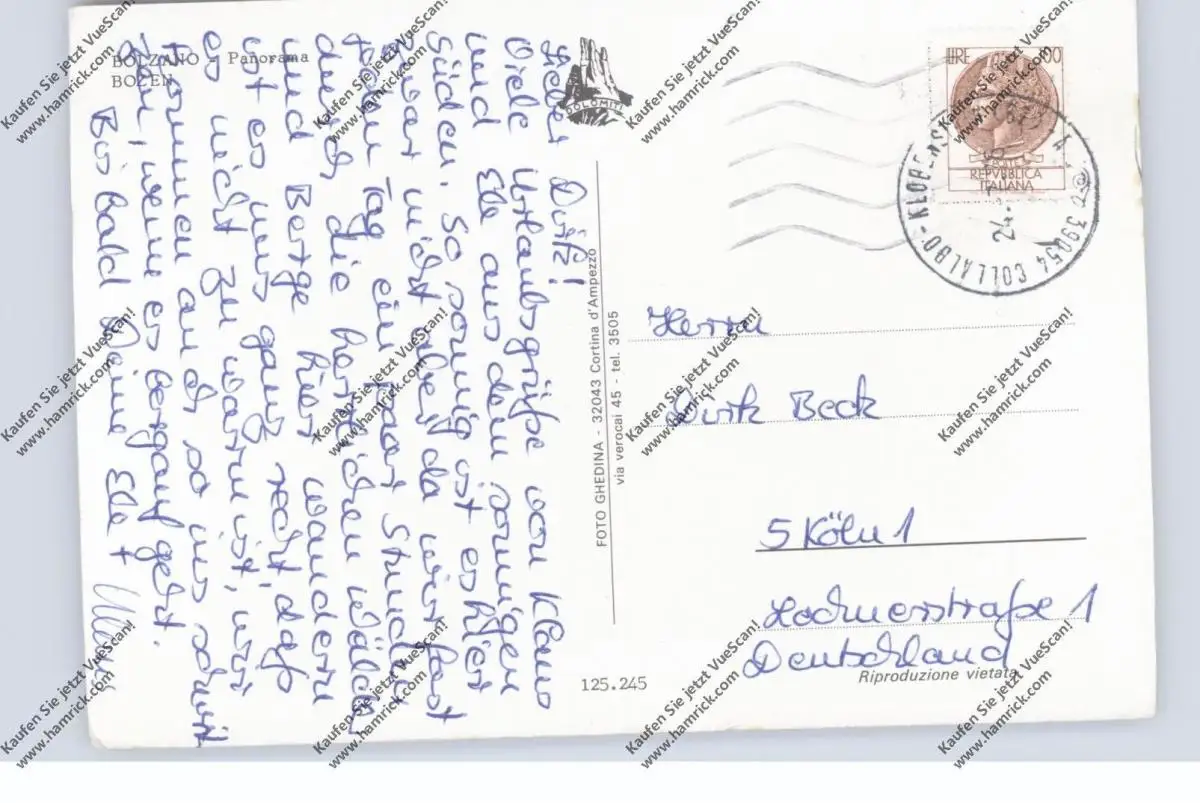 BOLZANO - Panorama
BOZEN
Lieber Dirk!
Viele Urlaubsgrüße von Klaus
und Elle aus dem sonnigen
Süden. So sonnig ist es hier
zwar nicht aber da wir fast
jeden Tag ein paar Stunden
durch die herrlichen Wälder
und Berge hier wandern
ist es uns ganz recht, daß
es nicht zu warm ist, wir
kommen auch so ins schwit
zen, wenn es bergauf geht.
Bis bald Deine Elle +
Klaus
DOLOMITI
FOTO GHEDINA - 32043 Cortina d'Ampezzo
via verocai 45 - tel. 3505
125.245
LIRE 100
POSTE
REPVBBLICA
ITALIANA
39054 COLLALBO - KLOBENST
24.
Herrn
Dirk Beck
5 Köln 1
Lochnerstraße 1
Deutschland
Riproduzione vietata
Kaufen Sie jetzt VueScan!
www.hamrick.com
Kaufen Sie jetzt VueScan!
www.hamrick.com
Kaufen Sie jetzt VueScan!
www.hamrick.com
Kaufen Sie jetzt VueScan!
www.hamrick.com
Kaufen Sie jetzt VueScan!
www.hamrick.com
Kaufen Sie jetzt VueScan!
www.hamrick.com
Kaufen Sie jetzt VueScan!
www.hamrick.com
Kaufen Sie jetzt VueScan!
www.hamrick.com
Kaufen Sie jetzt VueScan!
www.hamrick.com
Kaufen Sie jetzt VueScan!
www.hamrick.com
Kaufen Sie jetzt VueScan!
www.hamrick.com
Kaufen Sie jetzt VueScan!
www.hamrick.com